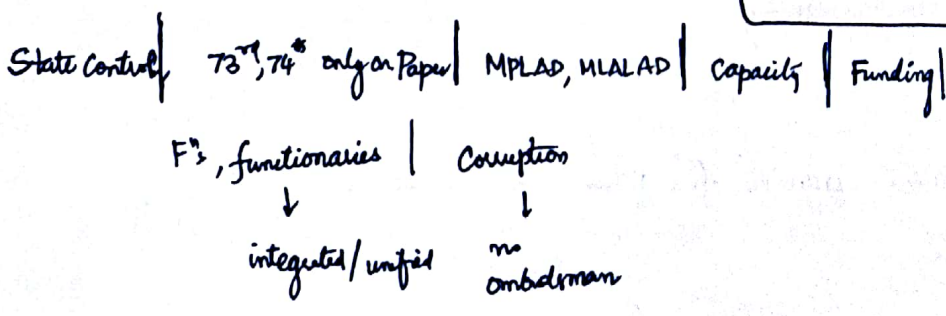 State Control | 73rd, 74th only on Paper | MPLAD, MLALAD | Capacity | Funding |
Fns, functionaries | Corruption
↓ ↓
integrated/unified no
ombudsman